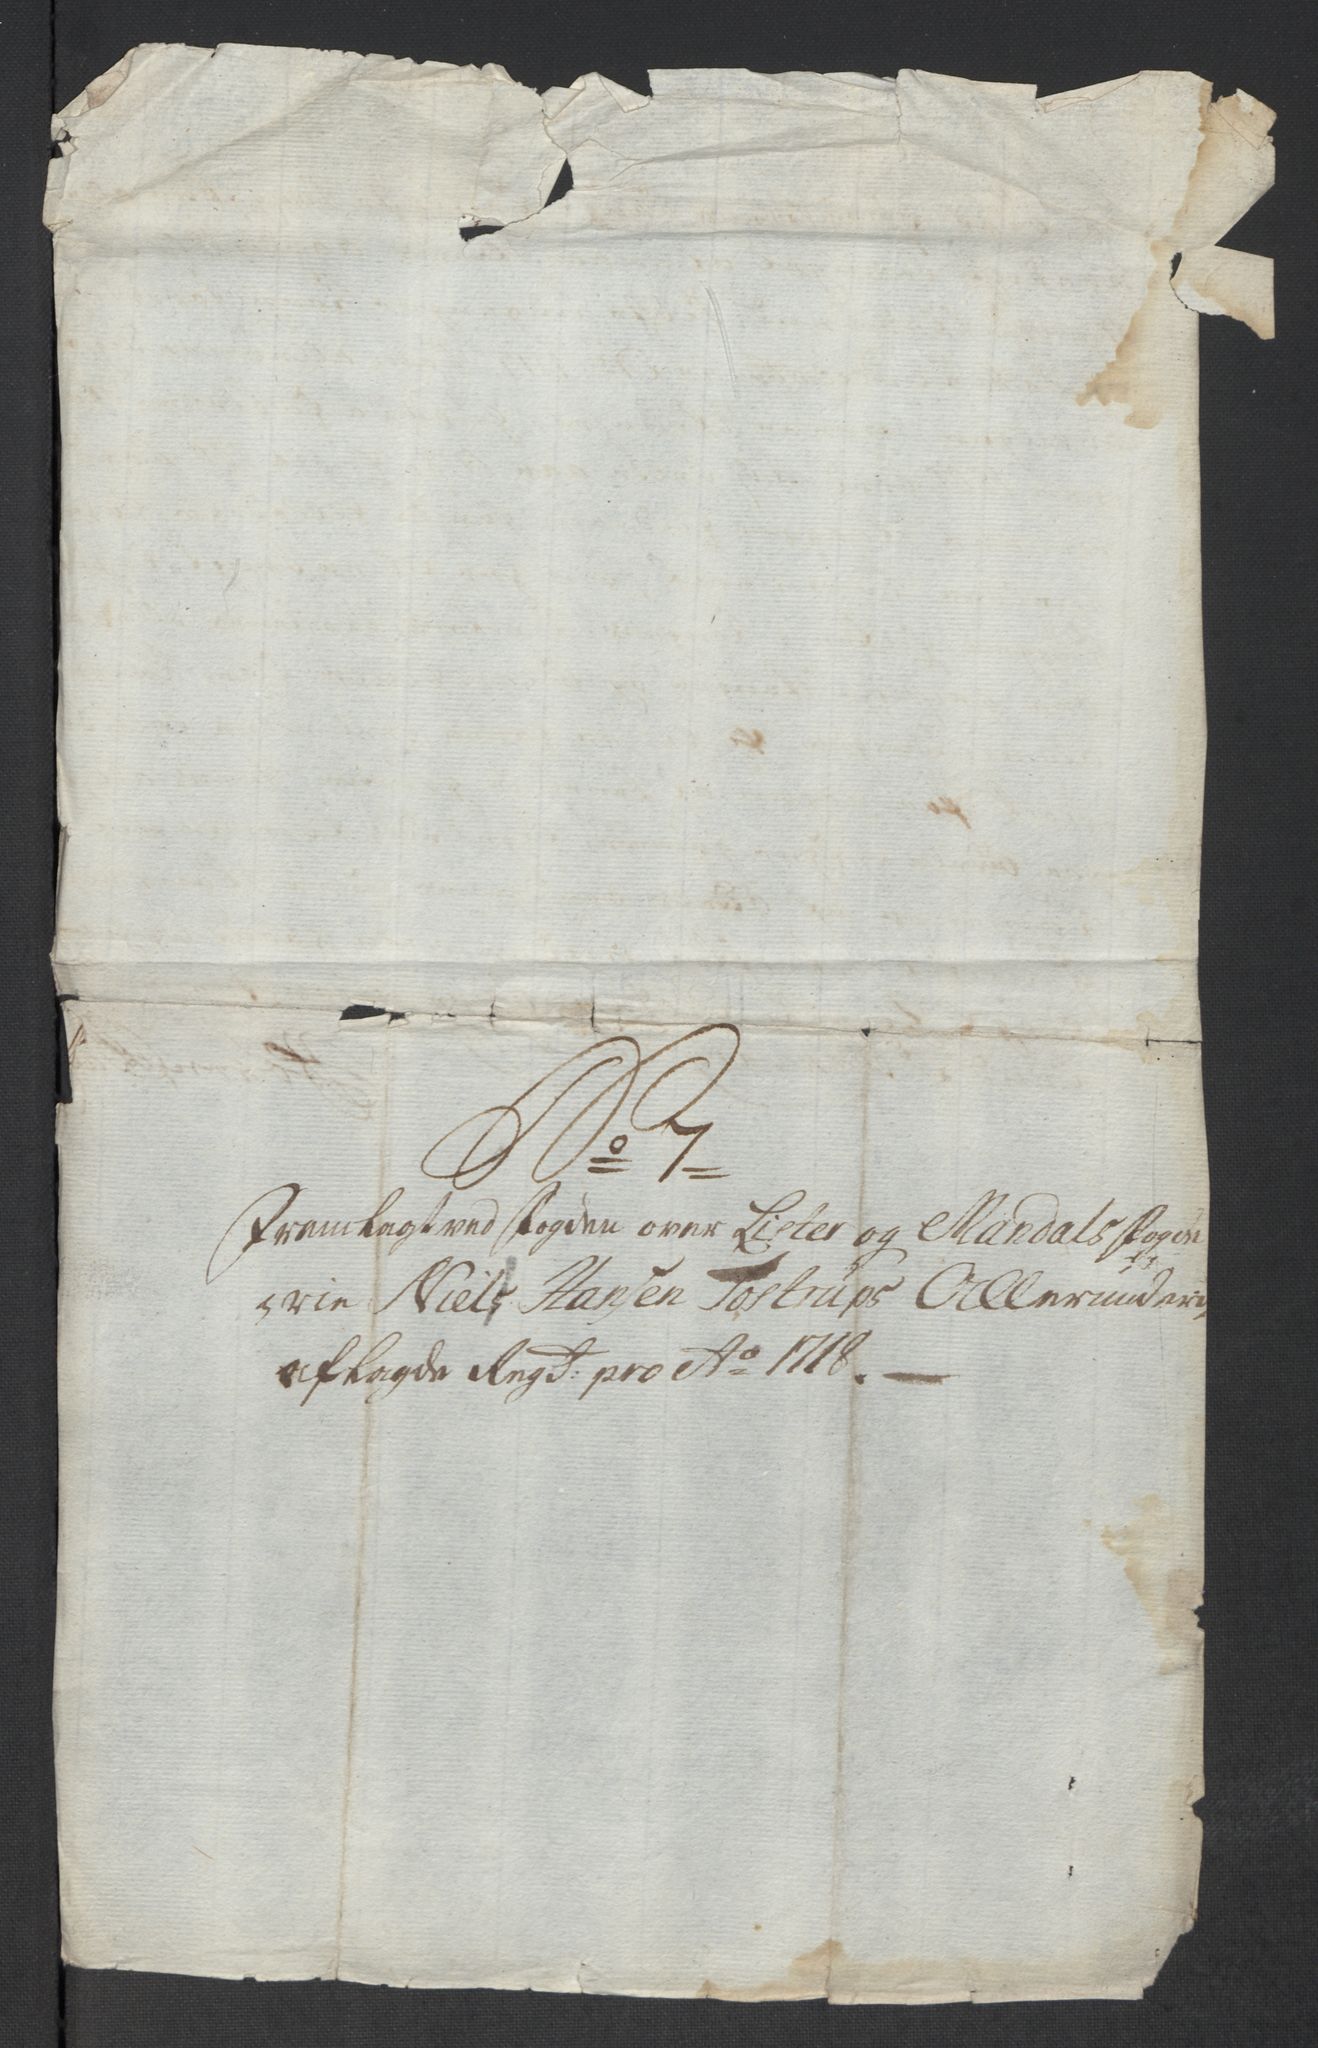 No 7
Fremlagt ved fogden over Lister og Mandals fogde
rie Niels Hansen Tostrups Allerunders
aflagde Regsk: pro Ao 1718.